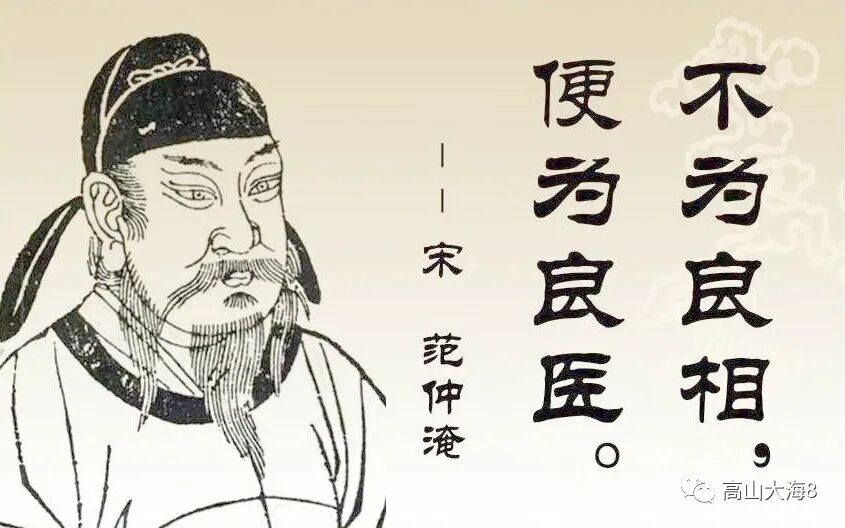 不为良相，
便为良医。
——宋 范仲淹
高山大海8